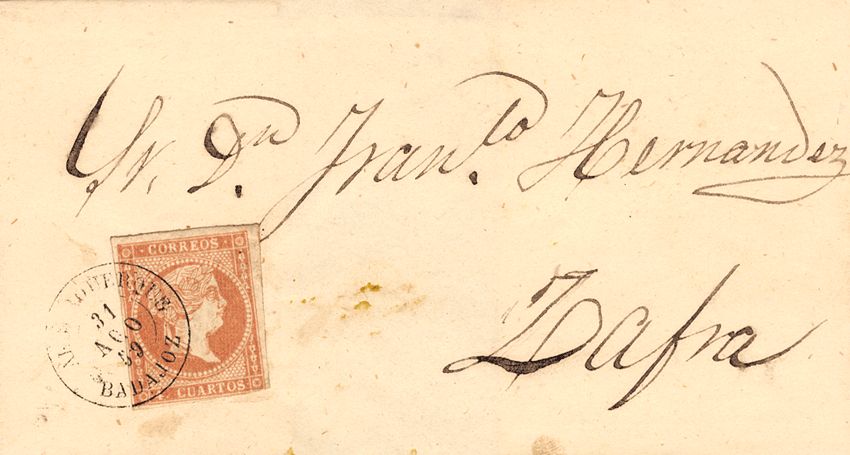 Sr. Dⁿ Franᶜᵒ Hernandez
Zafra
CORREOS
CUARTOS
ALBURQUERQUE
31
AGO
59
BADAJOZ